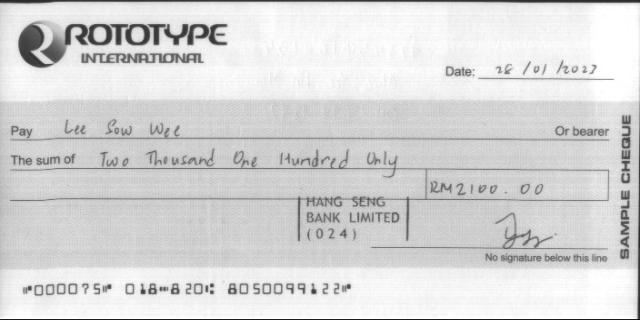 ROTOTYPE
INTERNATIONAL
Date: 28/01/2023
Pay Lee Sow Wee Or bearer
The sum of Two Thousand One Hundred Only
RM2100.00
HANG SENG
BANK LIMITED
(024)
No signature below this line
SAMPLE CHEQUE
⑈000075⑈ 018⑉820⑆ 8050099122⑈